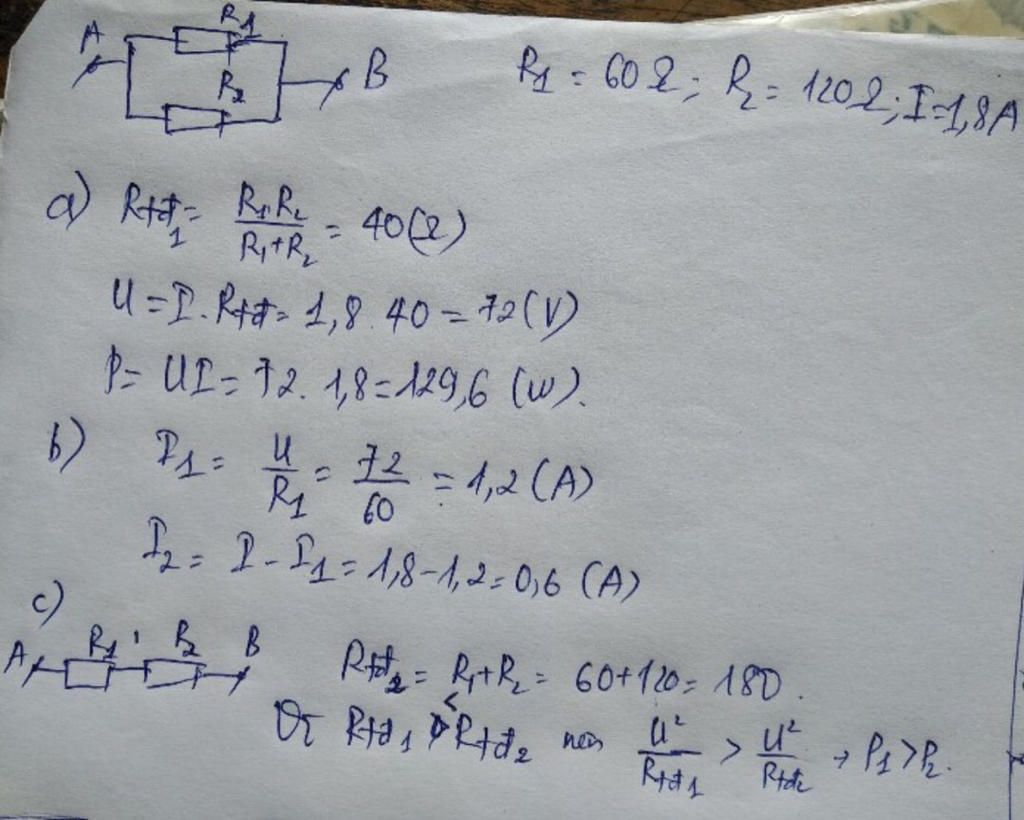 R₁
A
B
R₂
R₁ = 60Ω; R₂ = 120Ω; I = 1,8A
a) Rtđ₁ = R₁.R₂ / R₁+R₂ = 40(Ω)
U = I.Rtđ = 1,8.40 = 72(V)
P = UI = 72.1,8 = 129,6 (W).
b) I₁ = U / R₁ = 72 / 60 = 1,2(A)
I₂ = I - I₁ = 1,8-1,2 = 0,6 (A)
c)
A R₁ R₂ B
Rtđ₂ = R₁+R₂ = 60+120 = 180.
Rtđ₁ < Rtđ₂ nên U² / Rtđ₁ > U² / Rtđ₂ → P₁ > P₂.